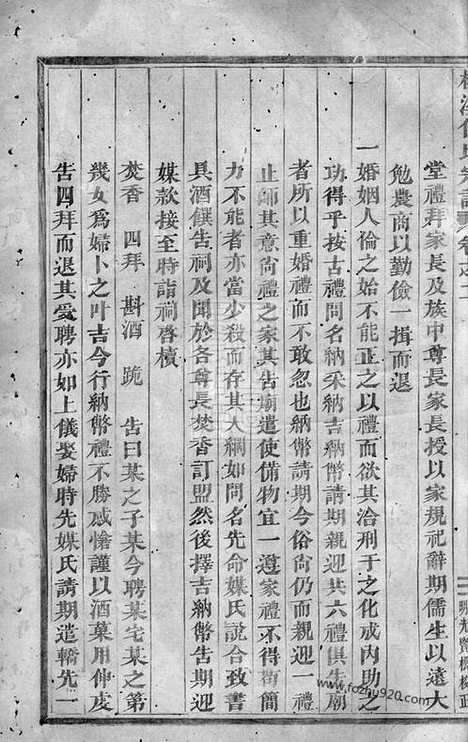 堂禮拜家長及族中尊長家長授以家規祀辭期儒生以遠大
勉農商以勤儉一揖而退
一婚姻人倫之始不能正之以禮而欲其洽刑于之化成內助之
功得乎按古禮問名納采納吉納幣請期親迎共六禮俱告廟
者所以重婚禮而不敢忽也納幣請期今俗尚仍而親迎一禮
止師其意尚禮之家其告廟遣使備物宜一遵家禮不得苟簡
力不能者亦當少殺而存其大綱如問名先命媒氏說合致書
具酒饌告祠及聞於各尊長焚香訂盟然後擇吉納幣告期迎
媒款接至時詣祠啓櫝
焚香 四拜 斟酒 跪 告曰某之子某今聘某宅某之第
幾女爲婦卜之叶吉今行納幣禮不勝感愴謹以酒菓用伸虔
告四拜而退其受聘亦如上儀娶婦時先媒氏請期遣轎先一
www.fozhu920.com